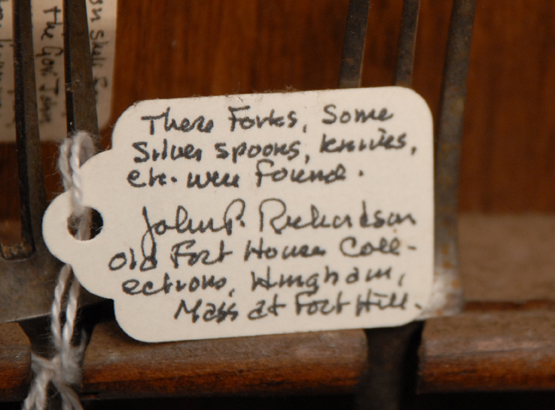 These Forks, Some
Silver spoons, knives,
etc. were found.
John P. Richardson
Old Fort House Coll-
ections, Hingham,
Mass at Fort Hill.
the Gov. John